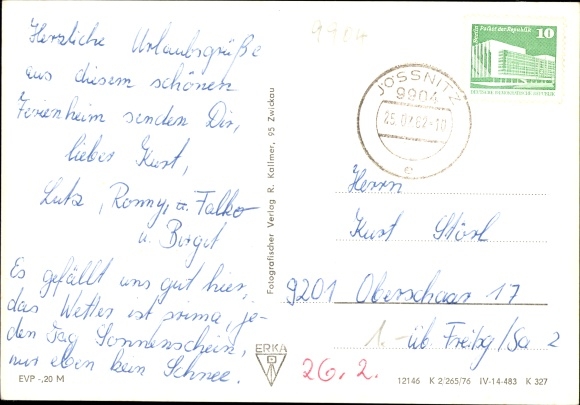 Herzliche Urlaubsgrüße
aus diesem schönen
Ferienheim senden Dir,
lieber Kurt,
Lutz, Ronny, u. Falko
u. Birgit
Es gefällt uns gut hier,
das Wetter ist prima, je-
den Tag Sonnenschein,
nur eben kein Schnee.
EVP -,20 M
Fotografischer Verlag R. Kallmer, 95 Zwickau
ERKA
9904
JOSSNITZ
9904
25.02.82-10
e
Berlin Palast der Republik
10
DEUTSCHE DEMOKRATISCHE REPUBLIK
Herrn
Kurt
9201 Oberschaar 17
1.- üb. Freibg/Sa 2
26. 2.
12146 K 2/265/76 IV-14-483 K 327